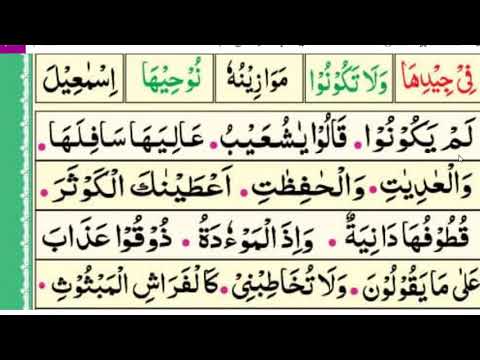 فِیْ جِیْدِهَا وَلَا تَكُوْنُوْا مَوَازِیْنُهٗ نُوْحِیْهَا اِسْمٰعِیْلَ
لَمْ یَكُوْنُوْا ۰ قَالُوْا یٰشُعَیْبُ ۰ عَالِیَهَا سَافِلَهَا ۰
وَالْعٰدِیٰتِ ۰ وَالْحٰفِظٰتِ ۰ اَعْطَیْنٰكَ الْكَوْثَرَ ۰
قُطُوْفُهَا دَانِیَةٌ ۰ وَاِذَ الْمَوْءٗدَةُ ۰ ذُوْقُوْا عَذَابَ
عَلٰی مَا یَقُوْلُوْنَ ۰ وَلَا تُخَاطِبْنِیْ ۰ كَالْفَرَاشِ الْمَبْثُوْثِ ۰